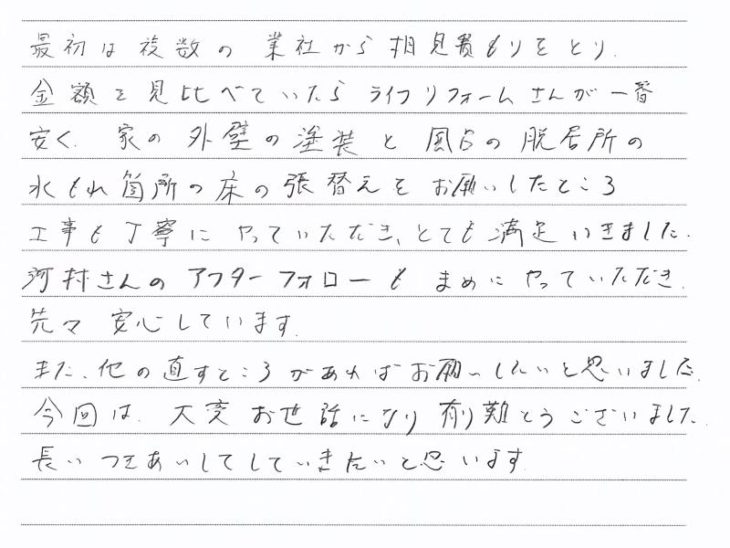 最初は複数の業社から相見積もりをとり.
金額を見比べていたらライフリフォームさんが一番
安く.家の外壁の塗装と風呂の脱居所の
水もれ箇所の床の張替えをお願いしたところ
工事も丁寧にやっていただき、とても満足いきました.
河村さんのアフターフォローもまめにやっていただき.
先々安心しています.
また、他の直すところがあればお願いしたいと思いました.
今回は.大変お世話になり有り難とうございました.
長いつきあいしてしていきたいと思います